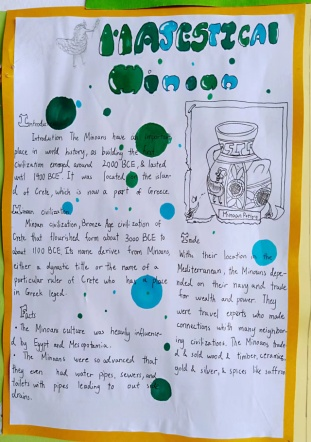 MAJESTICAL
Minoan
Introduc
Introdution The Minoans have an
place in world history, as building the
Civilization emerged around 2000 BCE, & lasted
until 1400 BCE. It was located on the islan-
d of Crete, which is now a part of Greece.
Minoan civilization
Minoan civilization, Bronze Age civilization of
Crete that flourished form about 3000 BCE to
about 1100 BCE. Its name derives from Minoan,
either a dynastic title or the name of a
particular ruler of Crete who has a place
in Greek leged.
Facts
• The Minoan culture was heavily influence-
d by Egypt and Mesopotamia.
• The Minoans were so advanced that
they even had water pipes, sewers, and
toilets with pipes leading to out side
drains.
Minoan Pottery
Trade
With their location in the
Mediterranean, the Minoans depe-
nded on their navy and trade
for wealth and power. They
were travel experts who made
connections which many neighbor-
ing civilizations. The Minoans trade-
d & sold wood & timbre, ceramics,
gold & silver, & spices like saffron